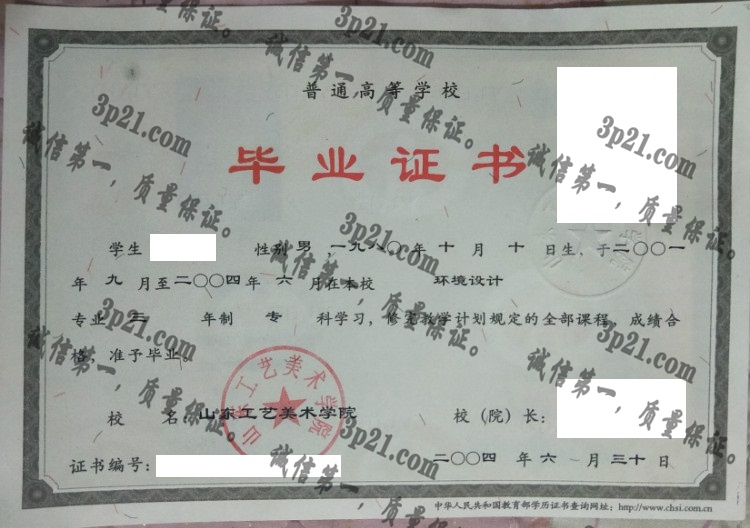 普通高等学校
毕业证书
学生 性别 男 ,一九八〇年 十 月 十 日生,于二〇〇一
年 九 月至二〇〇四年 六 月在本校 环境设计
专业 三 年制 专 科学习,修完教学计划规定的全部课程,成绩合
格,准予毕业。
校 名:山东工艺美术学院 校(院)长:
山东工艺美术学院
证书编号: 二〇〇四 年 六 月 三十 日
中华人民共和国教育部学历证书查询网址:http://www.chsi.com.cn
3p21.com
诚信第一,质量保证。
3p21.com
诚信第一,质量保证。
3p21.com
诚信第一,质量保证。
3p21.com
诚信第一,质量保证。
3p21.com
诚信第一,质量保证。
3p21.com
诚信第一,质量保证。
3p21.com
诚信第一,质量保证。
3p21.com
诚信第一,质量保证。